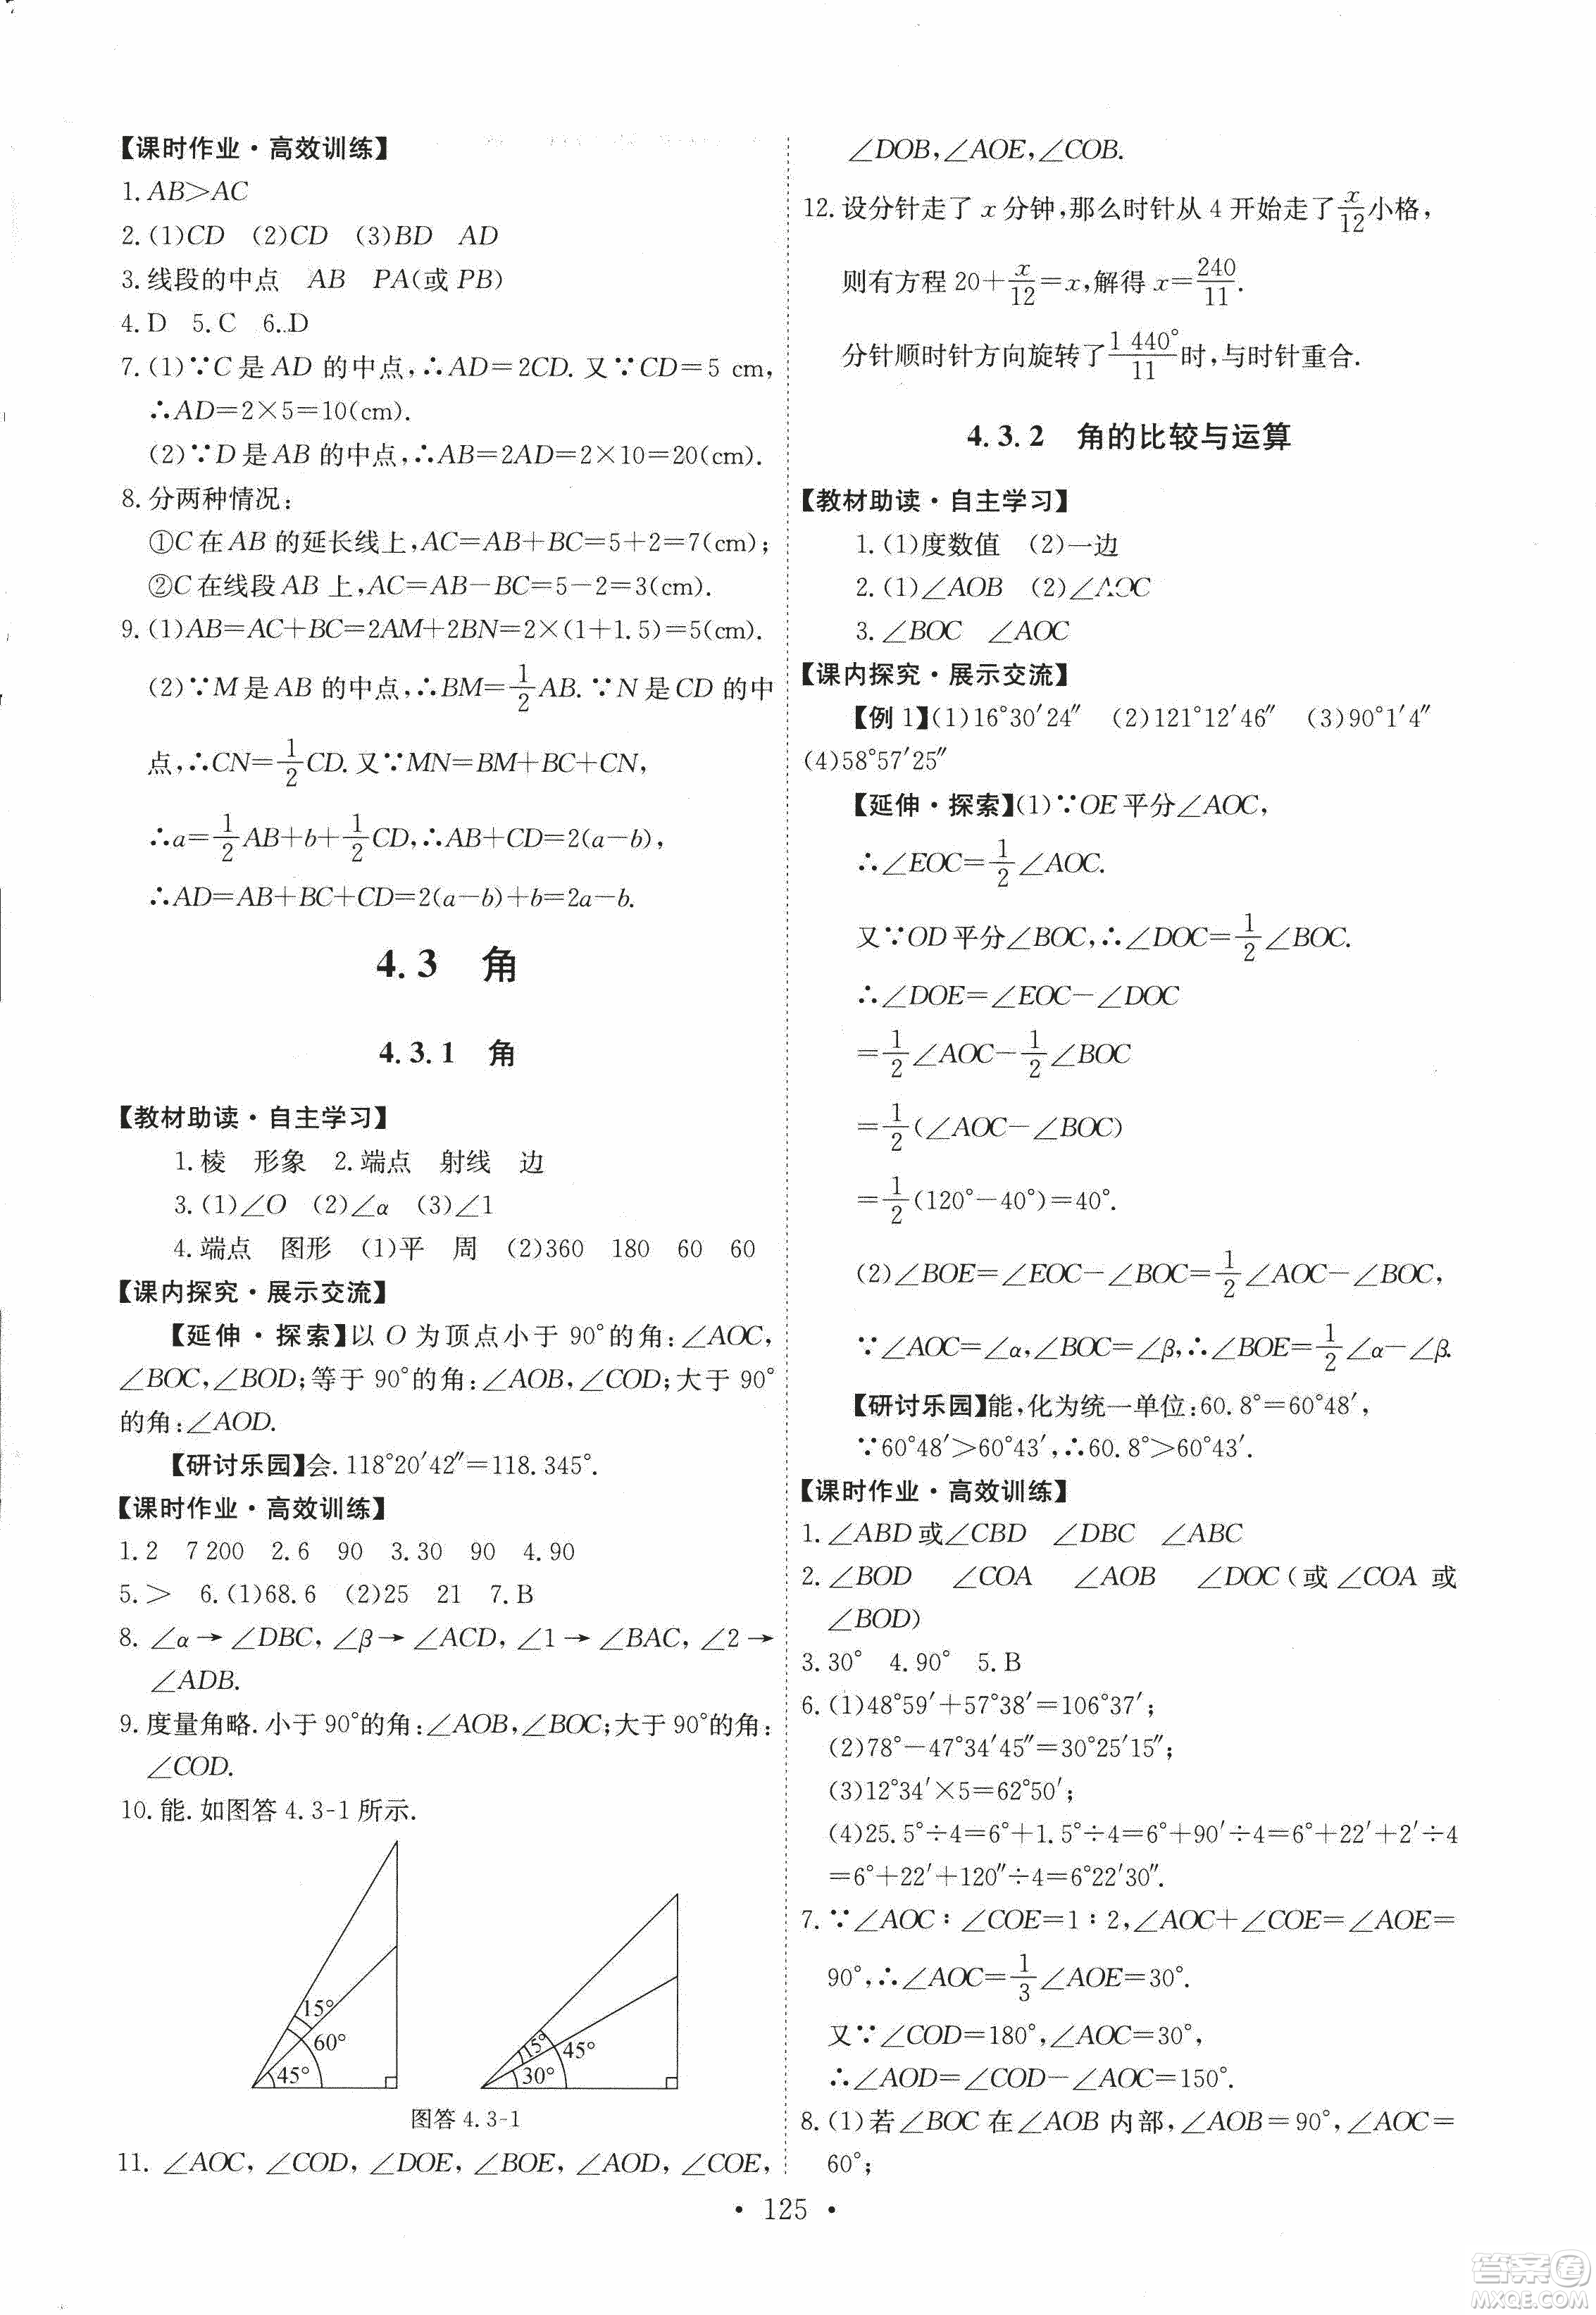 【课时作业·高效训练】
1. AB>AC
2. (1)CD (2)CD (3)BD AD
3. 线段的中点 AB PA(或 PB)
4. D 5. C 6..D
7. (1)∵C 是 AD 的中点,∴AD=2CD. 又∵CD=5 cm,
∴AD=2×5=10(cm).
(2)∵D 是 AB 的中点,∴AB=2AD=2×10=20(cm).
8. 分两种情况:
①C 在 AB 的延长线上,AC=AB+BC=5+2=7(cm);
②C 在线段 AB 上,AC=AB−BC=5−2=3(cm).
9. (1)AB=AC+BC=2AM+2BN=2×(1+1.5)=5(cm).
(2)∵M 是 AB 的中点,∴BM=1/2 AB. ∵N 是 CD 的中
点,∴CN=1/2 CD. 又∵MN=BM+BC+CN,
∴a=1/2 AB+b+1/2 CD,∴AB+CD=2(a−b),
∴AD=AB+BC+CD=2(a−b)+b=2a−b.
4.3 角
4.3.1 角
【教材助读·自主学习】
1. 棱 形象 2. 端点 射线 边
3. (1)∠O (2)∠α (3)∠1
4. 端点 图形 (1)平 周 (2)360 180 60 60
【课内探究·展示交流】
【延伸·探索】以 O 为顶点小于 90°的角:∠AOC,
∠BOC,∠BOD;等于 90°的角:∠AOB,∠COD;大于 90°
的角:∠AOD.
【研讨乐园】会. 118°20′42″=118.345°.
【课时作业·高效训练】
1. 2 7 200 2. 6 90 3. 30 90 4. 90
5. > 6. (1)68.6 (2)25 21 7. B
8. ∠α→∠DBC, ∠β→∠ACD, ∠1→∠BAC, ∠2→
∠ADB.
9. 度量角略. 小于 90°的角:∠AOB,∠BOC;大于 90°的角:
∠COD.
10. 能. 如图答 4.3-1 所示.
15°
60°
45°
15°
45°
30°
图答 4.3-1
11. ∠AOC, ∠COD, ∠DOE, ∠BOE, ∠AOD, ∠COE,
∠DOB,∠AOE,∠COB.
12. 设分针走了 x 分钟,那么时针从 4 开始走了 x/12 小格,
则有方程 20+x/12=x,解得 x=240/11.
分针顺时针方向旋转了 1 440°/11 时,与时针重合.
4.3.2 角的比较与运算
【教材助读·自主学习】
1. (1)度数值 (2)一边
2. (1)∠AOB (2)∠AOC
3. ∠BOC ∠AOC
【课内探究·展示交流】
【例 1】(1)16°30′24″ (2)121°12′46″ (3)90°1′4″
(4)58°57′25″
【延伸·探索】(1)∵OE 平分∠AOC,
∴∠EOC=1/2∠AOC.
又∵OD 平分∠BOC,∴∠DOC=1/2∠BOC.
∴∠DOE=∠EOC−∠DOC
=1/2∠AOC−1/2∠BOC
=1/2(∠AOC−∠BOC)
=1/2(120°−40°)=40°.
(2)∠BOE=∠EOC−∠BOC=1/2∠AOC−∠BOC,
∵∠AOC=∠α,∠BOC=∠β,∴∠BOE=1/2∠α−∠β.
【研讨乐园】能,化为统一单位:60.8°=60°48′,
∵60°48′>60°43′,∴60.8°>60°43′.
【课时作业·高效训练】
1. ∠ABD 或∠CBD ∠DBC ∠ABC
2. ∠BOD ∠COA ∠AOB ∠DOC(或∠COA 或
∠BOD)
3. 30° 4. 90° 5. B
6. (1)48°59′+57°38′=106°37′;
(2)78°−47°34′45″=30°25′15″;
(3)12°34′×5=62°50′;
(4)25.5°÷4=6°+1.5°÷4=6°+90′÷4=6°+22′+2′÷4
=6°+22′+120″÷4=6°22′30″.
7. ∵∠AOC∶∠COE=1∶2,∠AOC+∠COE=∠AOE=
90°,∴∠AOC=1/3∠AOE=30°.
又∵∠COD=180°,∠AOC=30°,
∴∠AOD=∠COD−∠AOC=150°.
8. (1)若∠BOC 在∠AOB 内部,∠AOB=90°,∠AOC=
60°;
· 125 ·
答案圈
MXQE.COM